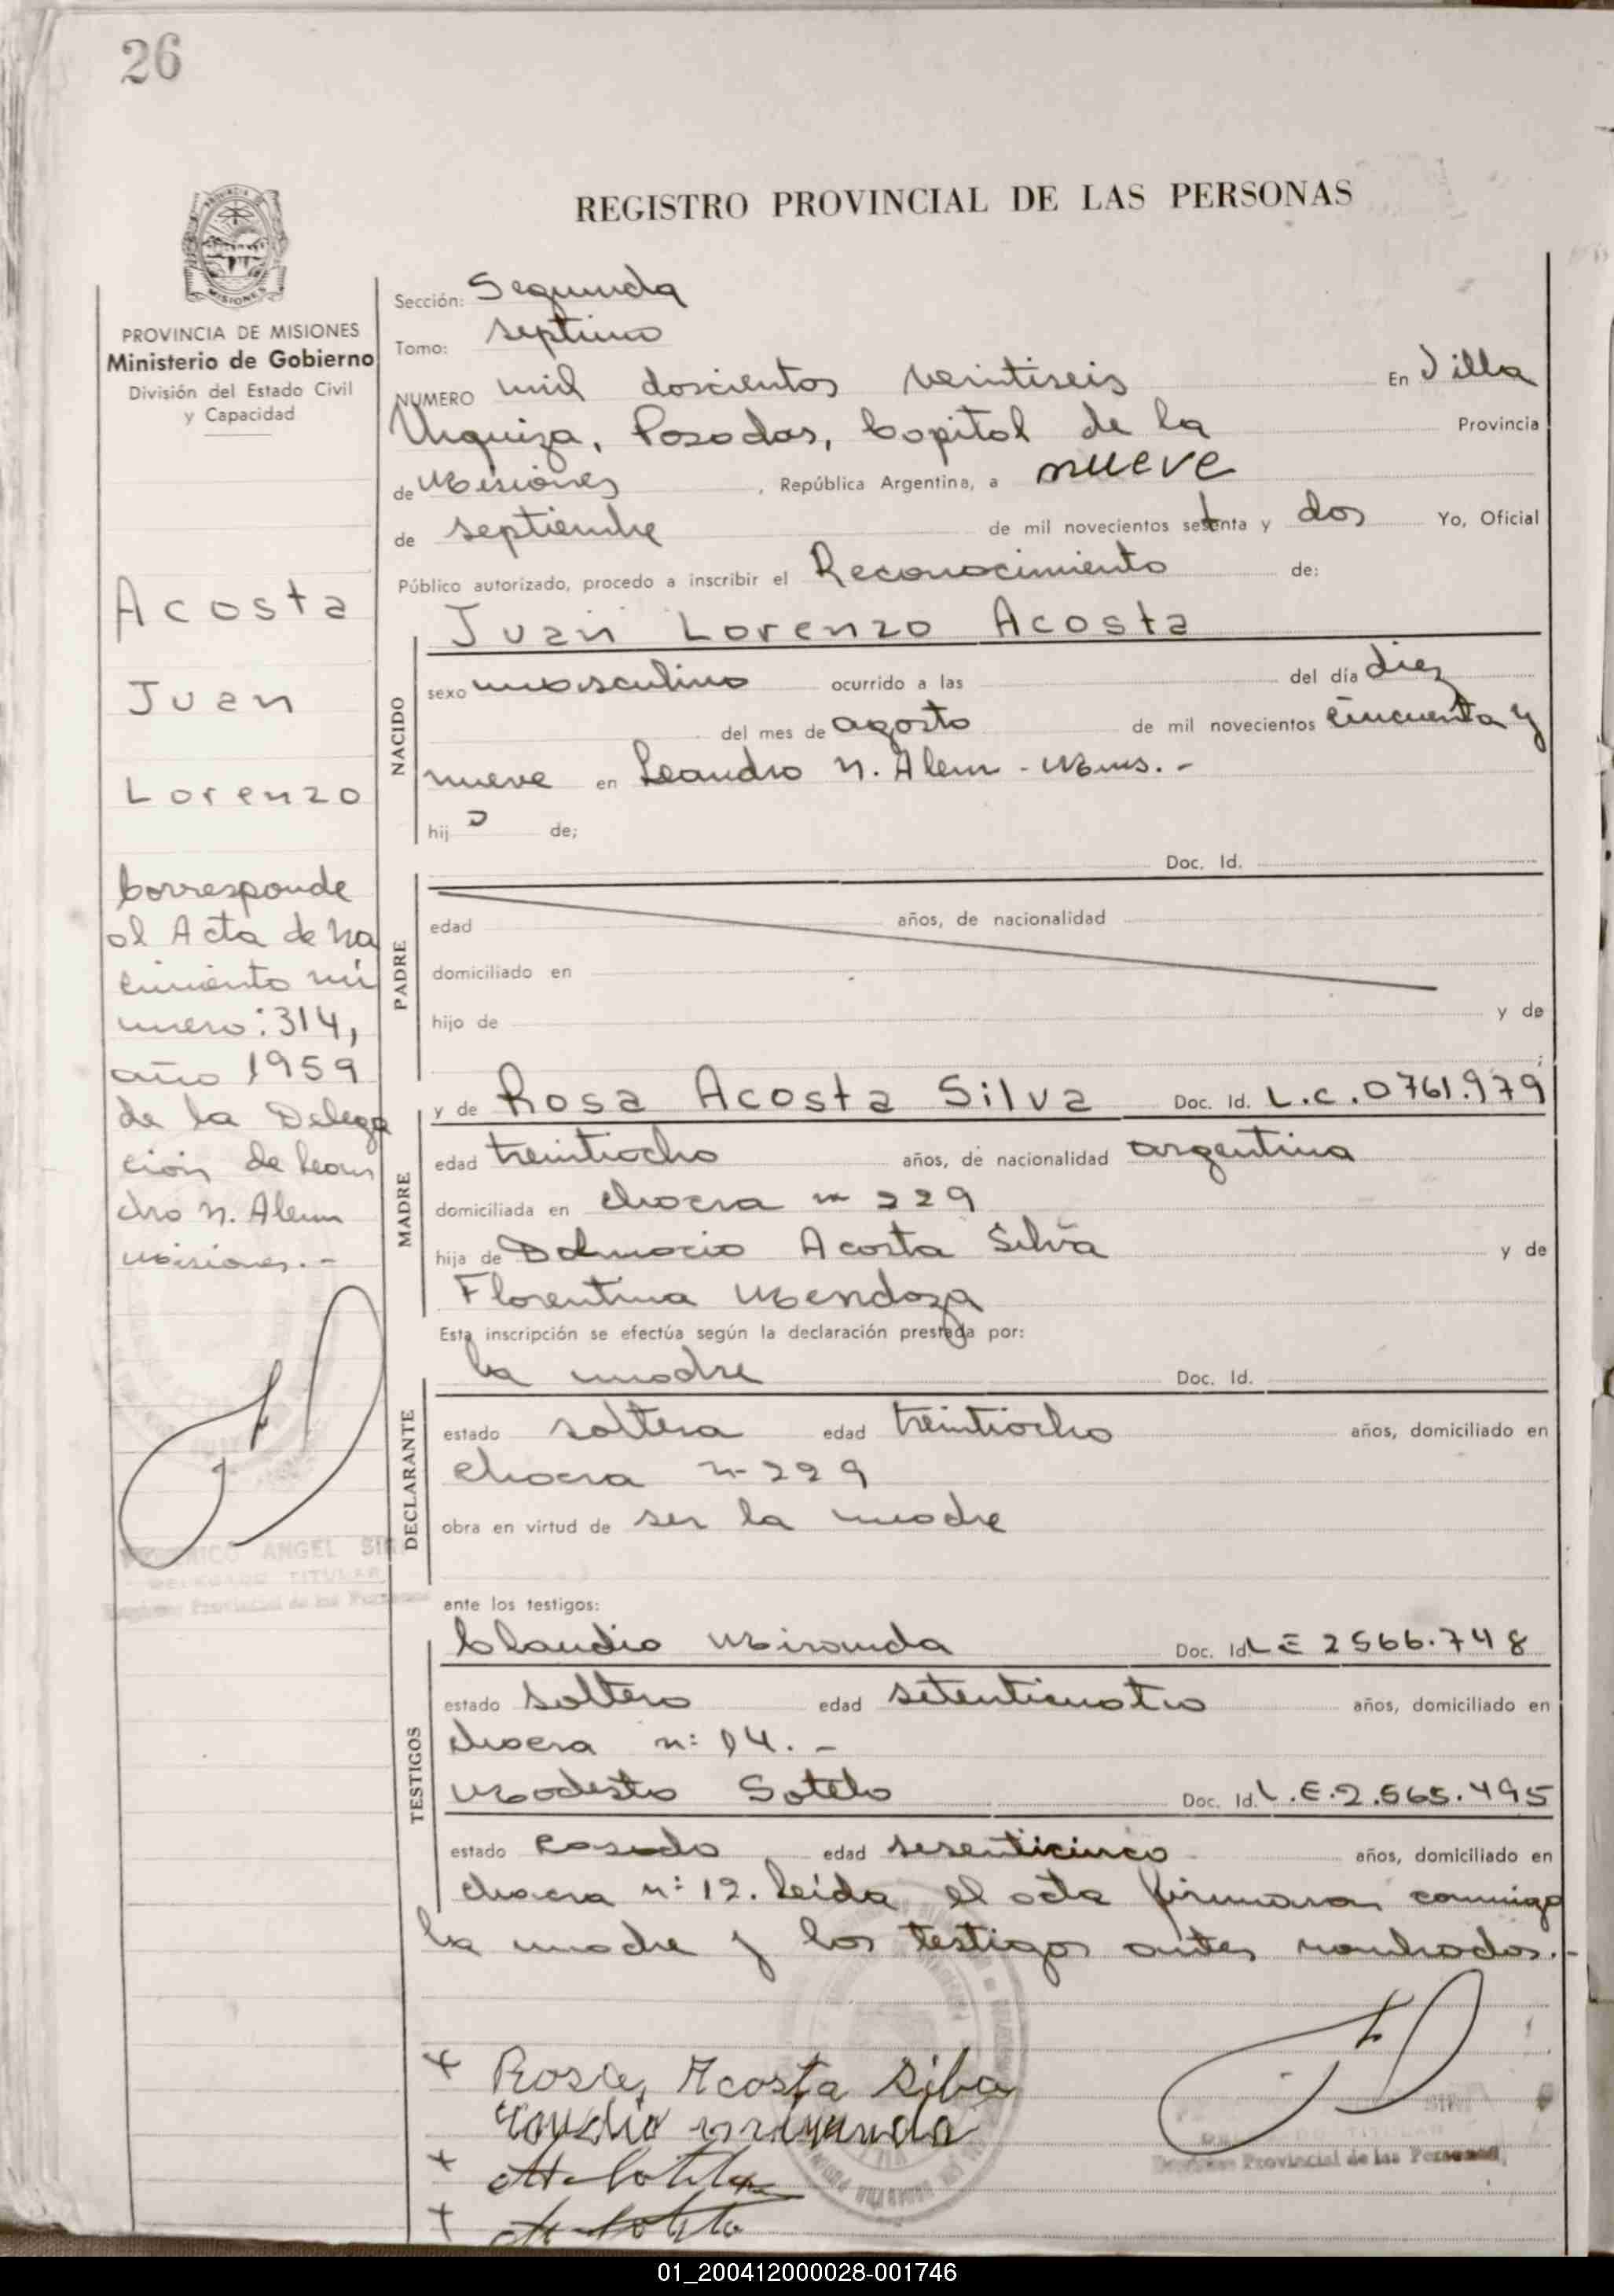 26
REGISTRO PROVINCIAL DE LAS PERSONAS
PROVINCIA DE MISIONES
Ministerio de Gobierno
División del Estado Civil
y Capacidad
Acosta
Juan
Lorenzo
Corresponde
al Acta de na
cimiento nú
mero: 314,
año 1959
de la Delega
ción de Lean
dro N. Alem
Misiones.-
ANGEL
TITULAR
Registro Provincial de las Personas
Sección: Segunda
Tomo: septimo
NUMERO mil doscientos veintiseis En Villa
Urquiza, Posadas, Capital de la Provincia
de Misiones, República Argentina, a nueve
de septiembre de mil novecientos setenta y dos Yo, Oficial
Público autorizado, procedo a inscribir el Reconocimiento de:
Juan Lorenzo Acosta
NACIDO
sexo masculino ocurrido a las del día diez
del mes de agosto de mil novecientos cincuenta y
nueve en Leandro N. Alem - Mnes. -
hijo de;
Doc. Id.
PADRE
edad años, de nacionalidad
domiciliado en
hijo de y de
;
MADRE
y de Rosa Acosta Silva Doc. Id. L.C. 0761.979
edad treintiocho años, de nacionalidad argentina
domiciliada en chacra nº 229
hija de Dalmacio Acosta Silva y de
Florentina Mendoza
Esta inscripción se efectúa según la declaración prestada por:
la madre Doc. Id.
DECLARANTE
estado soltera edad treintiocho años, domiciliado en
chacra nº 229
obra en virtud de ser la madre
ante los testigos:
TESTIGOS
Claudio Miranda Doc. Id. LE 2566.748
estado soltero edad setenticuatro años, domiciliado en
chacra n: 14. -
Modesto Sotelo Doc. Id. L.E. 2.565.495
estado casado edad sesenticinco años, domiciliado en
chacra n: 12. Leída el acta firmaron conmigo
la madre y los testigos antes nombrados.-
+ Rosa Acosta Silba
Claudio miranda
+ M Sotelo
+ M Sotelo
Registro Provincial de las Personas
01_200412000028-001746